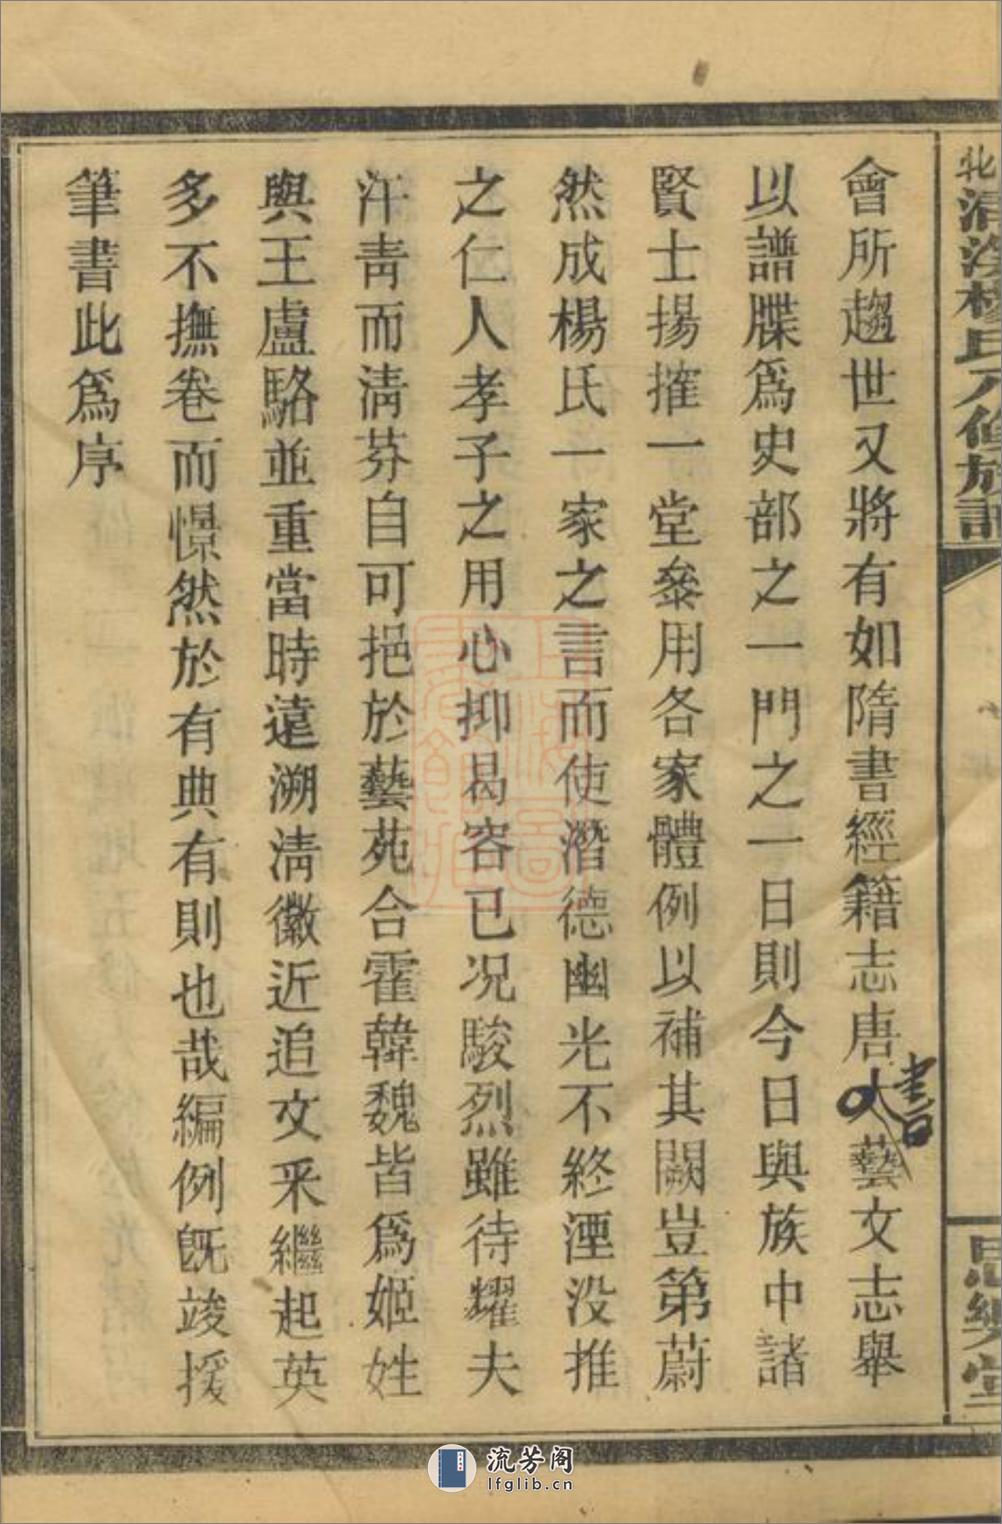 北清湊楊氏八修族譜
思樂堂
會所趨世又將有如隋書經籍志唐人藝文志舉
書
以譜牒爲史部之一門之一日則今日與族中諸
賢士揚搉一堂叅用各家體例以補其闕豈第蔚
然成楊氏一家之言而使潛德幽光不終湮没推
之仁人孝子之用心抑曷容已况駿烈雖待耀夫
汗靑而淸芬自可挹於藝苑合霍韓魏皆爲姬姓
與王盧駱並重當時遠溯淸徽近追文釆繼起英
多不撫卷而憬然於有典有則也哉編例旣竣援
筆書此爲序
流芳阁
lfglib.cn